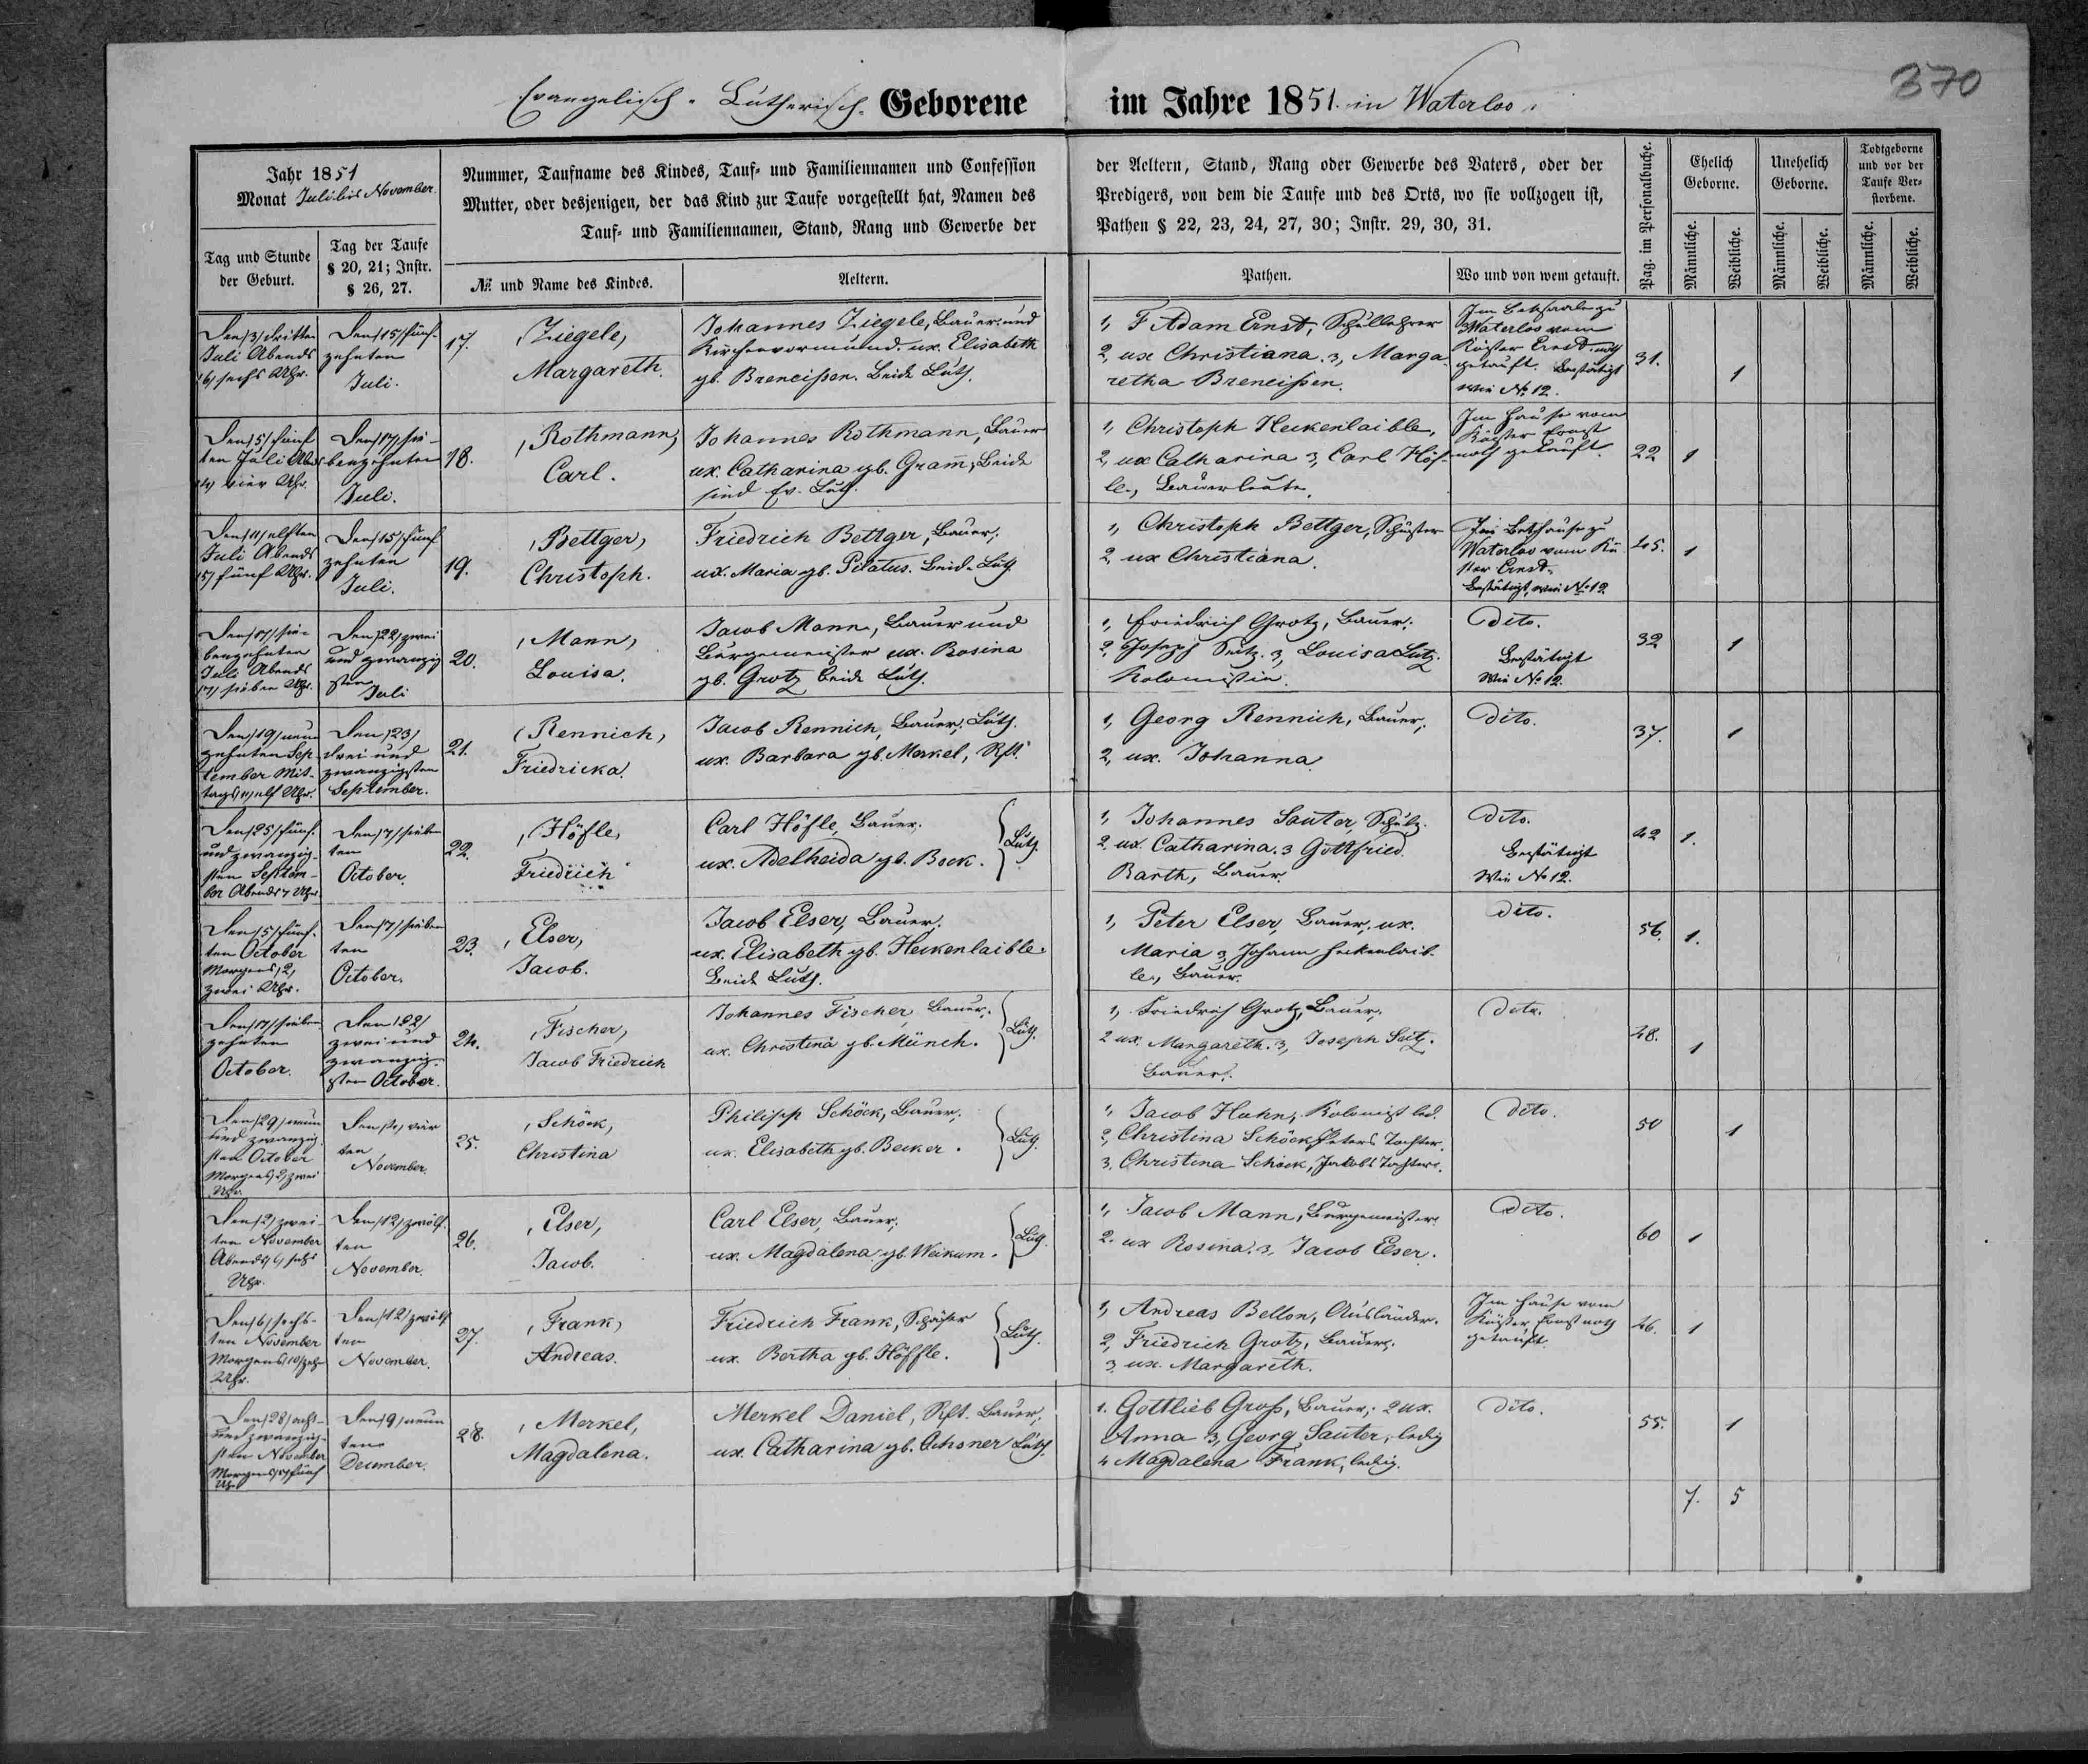 370
Evangelisch-Lutherisch Geborene im Jahre 1851. in Waterloo.
Jahr 1851
Monat Juli bis November.
Nummer, Taufname des Kindes, Tauf- und Familiennamen und Confession
Mutter, oder desjenigen, der das Kind zur Taufe vorgestellt hat, Namen des
Tauf- und Familiennamen, Stand, Rang und Gewerbe der
der Aeltern, Stand, Rang oder Gewerbe des Vaters, oder der
Predigers, von dem die Taufe und des Orts, wo sie vollzogen ist,
Pathen § 22, 23, 24, 27, 30; Instr. 29, 30, 31.
Tag und Stunde
der Geburt.
Tag der Taufe
§ 20, 21; Instr.
§ 26, 27.
№ und Name des Kindes.
Aeltern.
Pathen.
Wo und von wem getauft.
Pag. im Personalbuche.
Ehelich
Geborne.
Unehelich
Geborne.
Todtgeborne
und vor der
Taufe Ver-
storbene.
Männliche.
Weibliche.
Männliche.
Weibliche.
Männliche.
Weibliche.
Den /3/ dritten
Juli Abends
/6/ sechs Uhr.
Den /15/ fünf-
zehnten
Juli.
17.
Ziegele,
Margareth.
Johannes Ziegele, Bauer und
Kirchenvormund. ux. Elisabeth
gb. Breneißen. Beide Luth.
1, F Adam Ernst, Schullehrer
2, ux Christiana. 3, Marga-
retha Breneißen.
Im Bethsaale zu
Waterloo vom
Küster Ernst noth
getauft. Bestätigt
wie № 12.
31.
1
Den /5/ fünf
ten Juli Abds
/4/ vier Uhr.
Den /17/ sie-
benzehnten
Juli.
18.
Rothmann,
Carl.
Johannes Rothmann, Bauer
ux. Catharina gb. Gram̄, Beide
sind Ev. Luth.
1, Christoph Heckenlaible,
2, ux Catharina 3, Carl Höf-
le, Bauerleute.
Im Hause vom
Küster Ernst
noth getauft.
22
1
Den /11/ elften
Juli Abends
/5/ fünf Uhr.
Den /15/ fünf
zehnten
Juli.
19.
Bettger,
Christoph.
Friedrich Bettger, Bauer,
ux. Maria gb. Pilatus. Beide Luth.
1, Christoph Bettger, Schuster
2, ux Christiana.
Im Bethhause zu
Waterloo vom Kü-
ster Ernst.
Bestätigt, wie № 12.
45.
1
Den /17/ sie-
benzehnten
Juli Abends
/7/ sieben Uhr.
Den /22/ zwei
und zwanzig
sten
Juli
20.
Mann,
Louisa.
Jacob Mann, Bauer und
Bürgemeister ux. Rosina
gb. Grotz beide Luth.
1, Friedrich Grotz, Bauer;
2, Joseph Seitz. 3, Louisa Lutz.
Kolonistin.
Dito.
Bestätigt
Wie № 12.
32
1
Den /19/ neun
zehnten Sep-
tember Mit-
tags /11/ elf Uhr.
Den /23/
drei und
zwanzigsten
September.
21.
Rennich,
Friedricka.
Jacob Rennich, Bauer, Luth.
ux. Barbara gb. Merkel, Rft.
1, Georg Rennich, Bauer,
2, ux. Johanna
Dito.
37.
1
Den /25/ fünf-
und zwanzig-
sten Septem-
ber Abends 7 Uhr.
Den /7/ sieben
ten
October.
22.
Höfle,
Friedrich
Carl Höfle, Bauer.
ux. Adelheida gb. Bock.
Luth.
1, Johannes Sauter, Schulz.
2, ux. Catharina. 3 Gottfried
Barth, Bauer.
Dito.
Bestätigt
Wie № 12.
42
1.
Den /5/ fünf-
ten October
Morgens /2/
zwei Uhr.
Den /7/ sieben
ten
October.
23.
Elser,
Jacob.
Jacob Elser, Bauer.
ux. Elisabeth gb. Heckenlaible.
Beide Luth.
1, Peter Elser, Bauer, ux.
Maria 3, Johann Heckenlaib-
le, Bauer.
Dito.
56.
1.
Den /17/ sieben
zehnten
October.
Den /22/
zwei und
zwanzig-
sten October.
24.
Fischer,
Jacob Friedrich
Johannes Fischer, Bauer.
ux. Christina gb. Münch.
Luth.
1, Friedrich Grotz, Bauer,
2 ux. Margareth. 3, Joseph Seitz.
Bauer.
Dito.
48.
1
Den /29/ neun
und zwanzig-
sten October
Morgens /2/ zwei
Uhr.
Den /4/ vier
ten
November.
25.
Schöck,
Christina
Philipp Schöck, Bauer,
ux. Elisabeth gb. Becker.
Luth.
1, Jacob Hahn, Kolonist led.
2, Christina Schöck Peters Tochter.
3, Christina Schöck, Jakobs Tochter.
Dito.
50
1
Den /2/ zwei-
ten November
Abends /6/ sechs
Uhr.
Den /12/ zwölf-
ten
November.
26.
Elser,
Jacob.
Carl Elser, Bauer,
ux. Magdalena gb. Weikum.
Luth.
1, Jacob Mann, Bürgemeister
2. ux Rosina. 3, Jacob Elser.
Dito.
60
1
Den /6/ sechs-
ten November
Morgens /10/ zehn
Uhr.
Den /12/ zwölf
ten
November.
27.
Frank,
Andreas.
Friedrich Frank, Schäfer
ux. Bertha gb. Höffle.
Luth.
1, Andreas Bellon, Ausländer.
2, Friedrich Grotz, Bauer.
3, ux. Margareth.
Im Hause vom
Küster Ernst noth
getauft.
46.
1
Den /28/ acht-
und zwanzig-
sten November
Morgens /5/ fünf
Uhr
Den /9/ neun
ten
December.
28.
Merkel,
Magdalena.
Merkel Daniel, Rft. Bauer,
ux. Catharina gb. Ochsner Luth.
1. Gottlieb Groß, Bauer, 2 ux.
Anna 3, Georg Sauter, ledig
4 Magdalena Frank, ledig.
Dito.
55.
1
7. 5